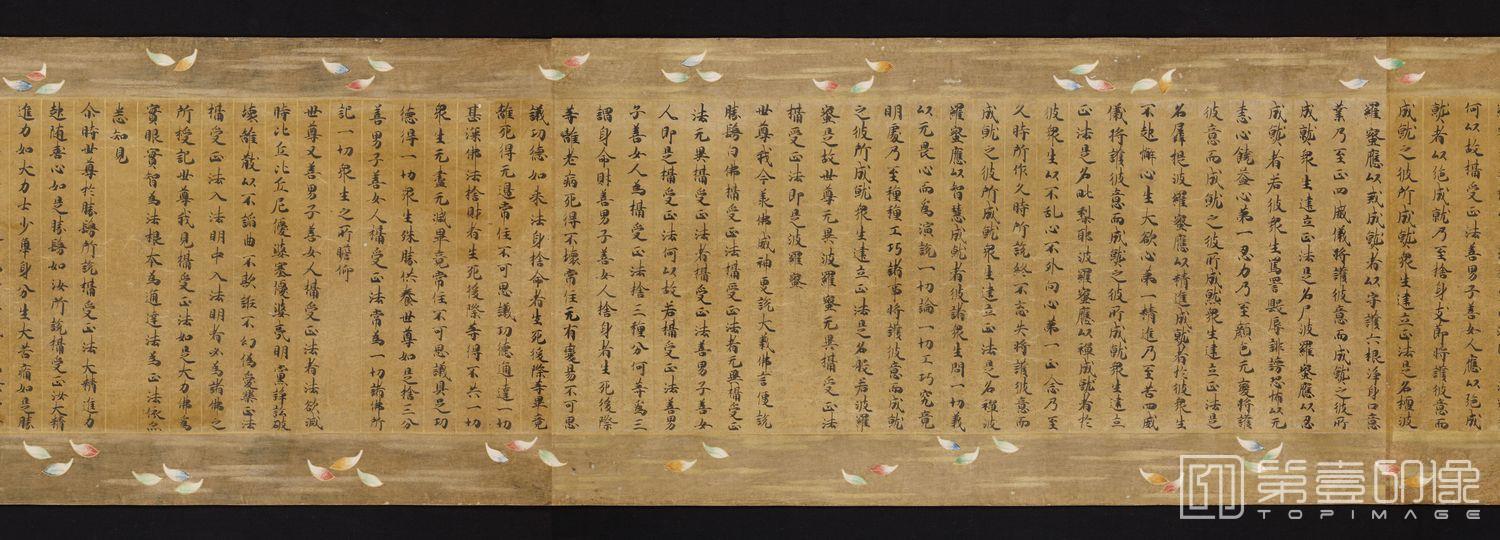 何以故攝受正法善男子善女人應以施成
就者以施成就乃至捨身支節將護彼意而
成就之彼所成就衆生建立正法是名檀波
羅蜜應以戒成就者以守護六根淨身口意
業乃至正四威儀將護彼意而成就之彼所
成就衆生建立正法是名尸波羅蜜應以忍
成就者若彼衆生罵詈毀辱誹謗恐怖以无
恚心饒益心第一忍力乃至顏色无變將護
彼意而成就之彼所成就衆生建立正法是
名羼提波羅蜜應以精進成就者於彼衆生
不起懈心生大欲心第一精進乃至若四威
儀將護彼意而成就之彼所成就衆生建立
正法是名毗梨耶波羅蜜應以禪成就者於
彼衆生以不亂心不外向心第一正念乃至
久時所作久時所說終不忘失將護彼意而
成就之彼所成就衆生建立正法是名禪波
羅蜜應以智慧成就者彼諸衆生問一切義
以无畏心而為演說一切論一切工巧究竟
明處乃至種種工巧諸事將護彼意而成就
之彼所成就衆生建立正法是名般若波羅
蜜是故世尊无異波羅蜜无異攝受正法
攝受正法即是波羅蜜
世尊我今承佛威神更說大義佛言便說
勝鬘白佛攝受正法攝受正法者无異攝受正
法无異攝受正法者攝受正法善男子善女
人即是攝受正法何以故若攝受正法善男
子善女人為攝受正法捨三種分何等為三
謂身命財善男子善女人捨身者生死後際
等離老病死得不壞常住无有變易不可思
議功德如來法身捨命者生死後際等畢竟
離死得无邊常住不可思議功德通達一切
甚深佛法捨財者生死後際等得不共一切
衆生无盡无減畢竟常住不可思議具足功
德得一切衆生殊勝供養世尊如是捨三分
善男子善女人攝受正法常為一切諸佛所
記一切衆生之所瞻仰
世尊又善男子善女人攝受正法者法欲滅
時比丘比丘尼優婆塞優婆夷朋黨諍訟破
壞離散以不諂曲不欺誑不幻偽愛樂正法
攝受正法入法朋中入法朋者必為諸佛之
所授記世尊我見攝受正法如是大力佛為
實眼實智為法根本為通達法為正法依亦
悉知見
尒時世尊於勝鬘所說攝受正法大精進力
起随喜心如是勝鬘如汝所說攝受正法大精
進力如大力士少觸身分生大苦痛如是勝
第壹印象
TOPIMAGE